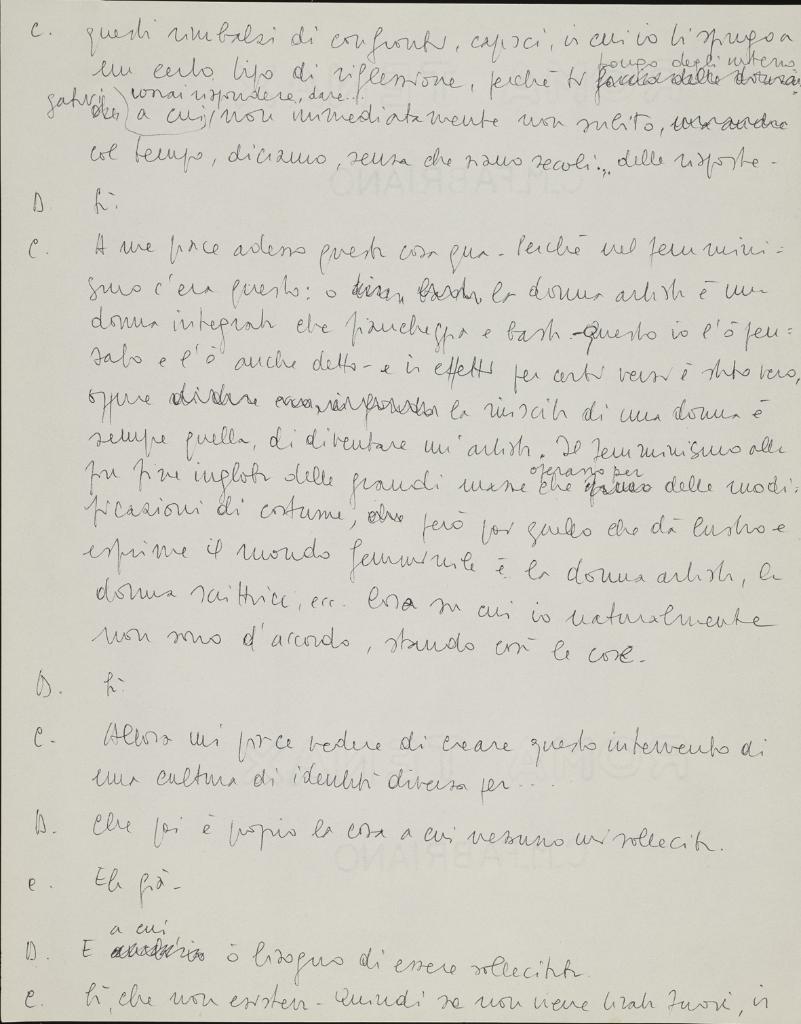 C. questi rimbalzi di confronto, capisci, in cui io ti spingo a
un certo tipo di riflessione, perché ti pongo degli interro
gativi a cui vorrai rispondere, dare... non immediatamente non subito,
col tempo, diciamo, senza che siano secoli... delle risposte -
D. Sì.
C. A me piace adesso questa cosa qua - Perché nel femmini=
smo c'era questo: o la donna artista è una
donna integrata che fiancheggia e basta - Questo io l'ò pen=
sato e l'ò anche detto - e in effetti per certi versi è stato vero,
oppure la riuscita di una donna è
sempre quella, di diventare un'artista. Il femminismo alla
fin fine ingloba delle grandi masse che operano per delle modi=
ficazioni di costume, però poi quello che dà lustro e
esprime il mondo femminile è la donna artista, la
donna scrittrice, ecc. Cosa su cui io naturalmente
non sono d'accordo, stando così le cose.
D. Sì.
C. Allora mi piace vedere di creare questo intervento di
una cultura di identità diversa per...
D. Che poi è proprio la cosa a cui nessuno mi sollecita.
C. Eh già -
D. E a cui ò bisogno di essere sollecitata.
C. Sì, che non esisteva - Quindi se non viene tirata fuori, in